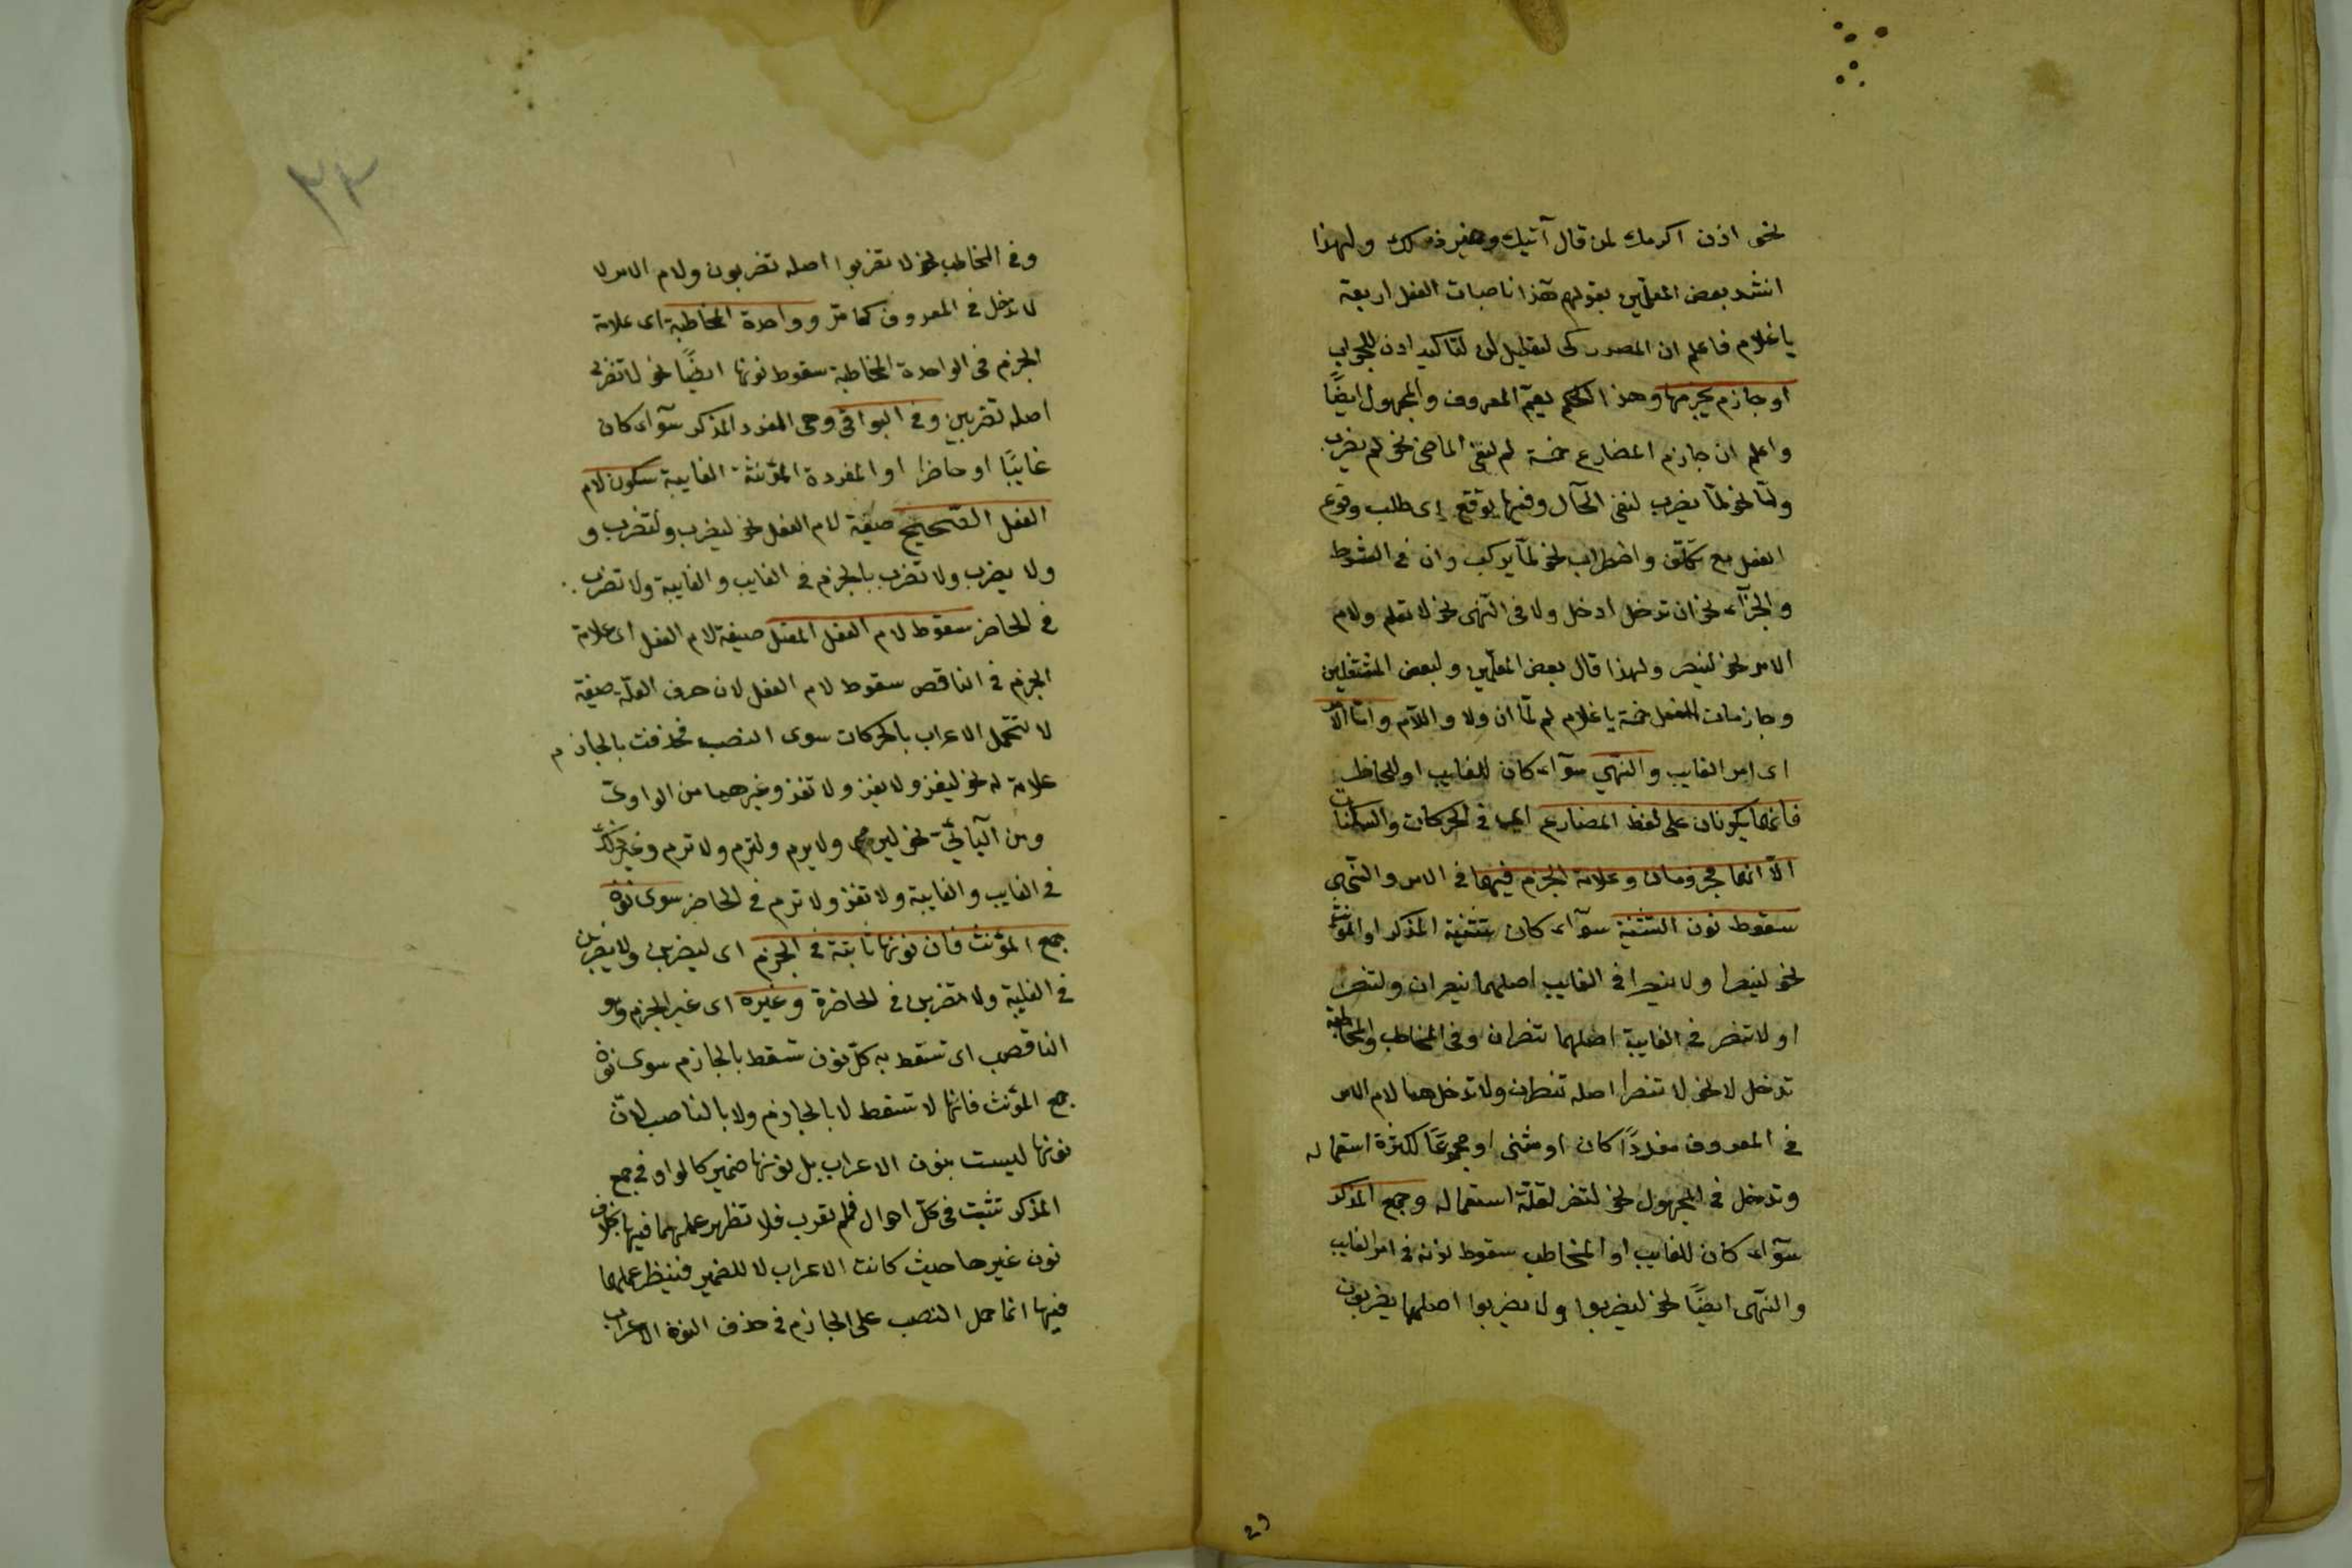 نحو اذن اكرمك لمن قال آتيك وغير ذلك ولهذا
انشد بعض المعلّمين بقولهم هذا ناصبات الفعل اربعة
يا غلام فاعلم ان المصدر كى لتعليل لن لتاكيد اذن للجواب
او جازم يجزمها وهذا الحكم يعمّ المعروف والمجهول ايضًا
واعلم ان جازم المضارع خمسة لم لنفى الماضى نحو لم يضرب
ولمّا نحو لمّا يضرب لنفى الحآل وفيها توقع اى طلب وقوع
الفعل مع تكلّف واضطراب نحو لمّا يركب وان فى الشرط
والجزآء نحو ان تدخل ادخل ولا فى النّهى نحو لا تعلم ولام
الامر نحو لينصر ولهذا قال بعض المعلّمين ولبعض المشتغلين
وجازمات الفعل خمسة يا غلام لم لمّا ان ولا واللآم وامّا الامر
اى امر الغايب والنهى سوآء كان للغايب او للحاظر
فانهما يكونان على لفظ المضارع اى فى الحركات والسكنات
الّا انهما مجزومان وعلامة الجزم فيهما فى الامر والنّهى
سقوط نون التثنية سوآء كان تثنية المذكر او المؤنث
نحو لينصرا ولا ينصرا فى الغايب اصلهما ينصران ولتنصرا
او لا تنصرا فى الغايبة اصلهما تنصران وفى المخاطب والمخاطبة
تدخل لا نحو لا تنصرا اصله تنصران ولا تدخل هما لام الامر
فى المعروف مفردًا كان او مثنى او مجموعًا لكثرة استعماله
وتدخل فى المجهول نحو لتنصر لقلّة استعماله وجمع المذكر
سوآء كان للغايب او المخاطب سقوط نونه فى امر الغايب
والنّهى ايضًا نحو ليضربوا ولا يضربوا اصلهما يضربون
29
٣٣
وفى المخاطب نحو لا تضربوا اصله تضربون ولام الامر لا
لا تدخل فى المعروف كما مرّ وواحدة المخاطبة اى علامة
الجزم فى الواحدة المخاطبة سقوط نونها ايضًا نحو لا تضربى
اصله تضربين وفى البواقى وهى المفرد المذكر سوآء كان
غايبًا او حاضرا او المفردة المؤنثة الغايبة سكون لام
الفعل الصّحيح صيغة لام الفعل نحو ليضرب ولتضرب و
ولا يضرب ولا تضرب بالجزم فى الغايب والغايبة ولا تضرب
فى الحاضر سقوط لام الفعل المعتل صيغة لام الفعل اى علامة
الجزم فى الناقص سقوط لام الفعل لان حرف العلّة صيغة
لا تتحمّل الاعراب بالحركات سوى النصب فحذفت بالجازم
علامة له نحو ليغز ولا يغز ولا تغز وغيرهما من الواوىّ
ومن اليآئىّ نحو ليرم ولا يرم ولترم ولا ترم وغير ذلك
فى الغايب والغايبة ولا تغز ولا ترم فى الحاضر سوى نون
جمع المؤنث فان نونها ثابتة فى الجزم اى ليضربن ولا يضربن
فى الغايبة ولا تضربن فى الحاضرة وغيره اى غير الجزم وهو
الناصب اى تسقط به كلّ نون تسقط بالجازم سوى نون
جمع المؤنث فانها لا تسقط لا بالجازم ولا بالناصب لانّ
نونها ليست بنون الاعراب بل نونها ضمير كالواو فى جمع
المذكر تثبت فى كلّ احوال فلم تعرب فلا تظهر عملهما فيها بخلاف
نون غيرها حيث كانت الاعراب لا للضمير فيظهر عملهما
فيها انما حمل النصب على الجازم فى حذف النون الاعراب